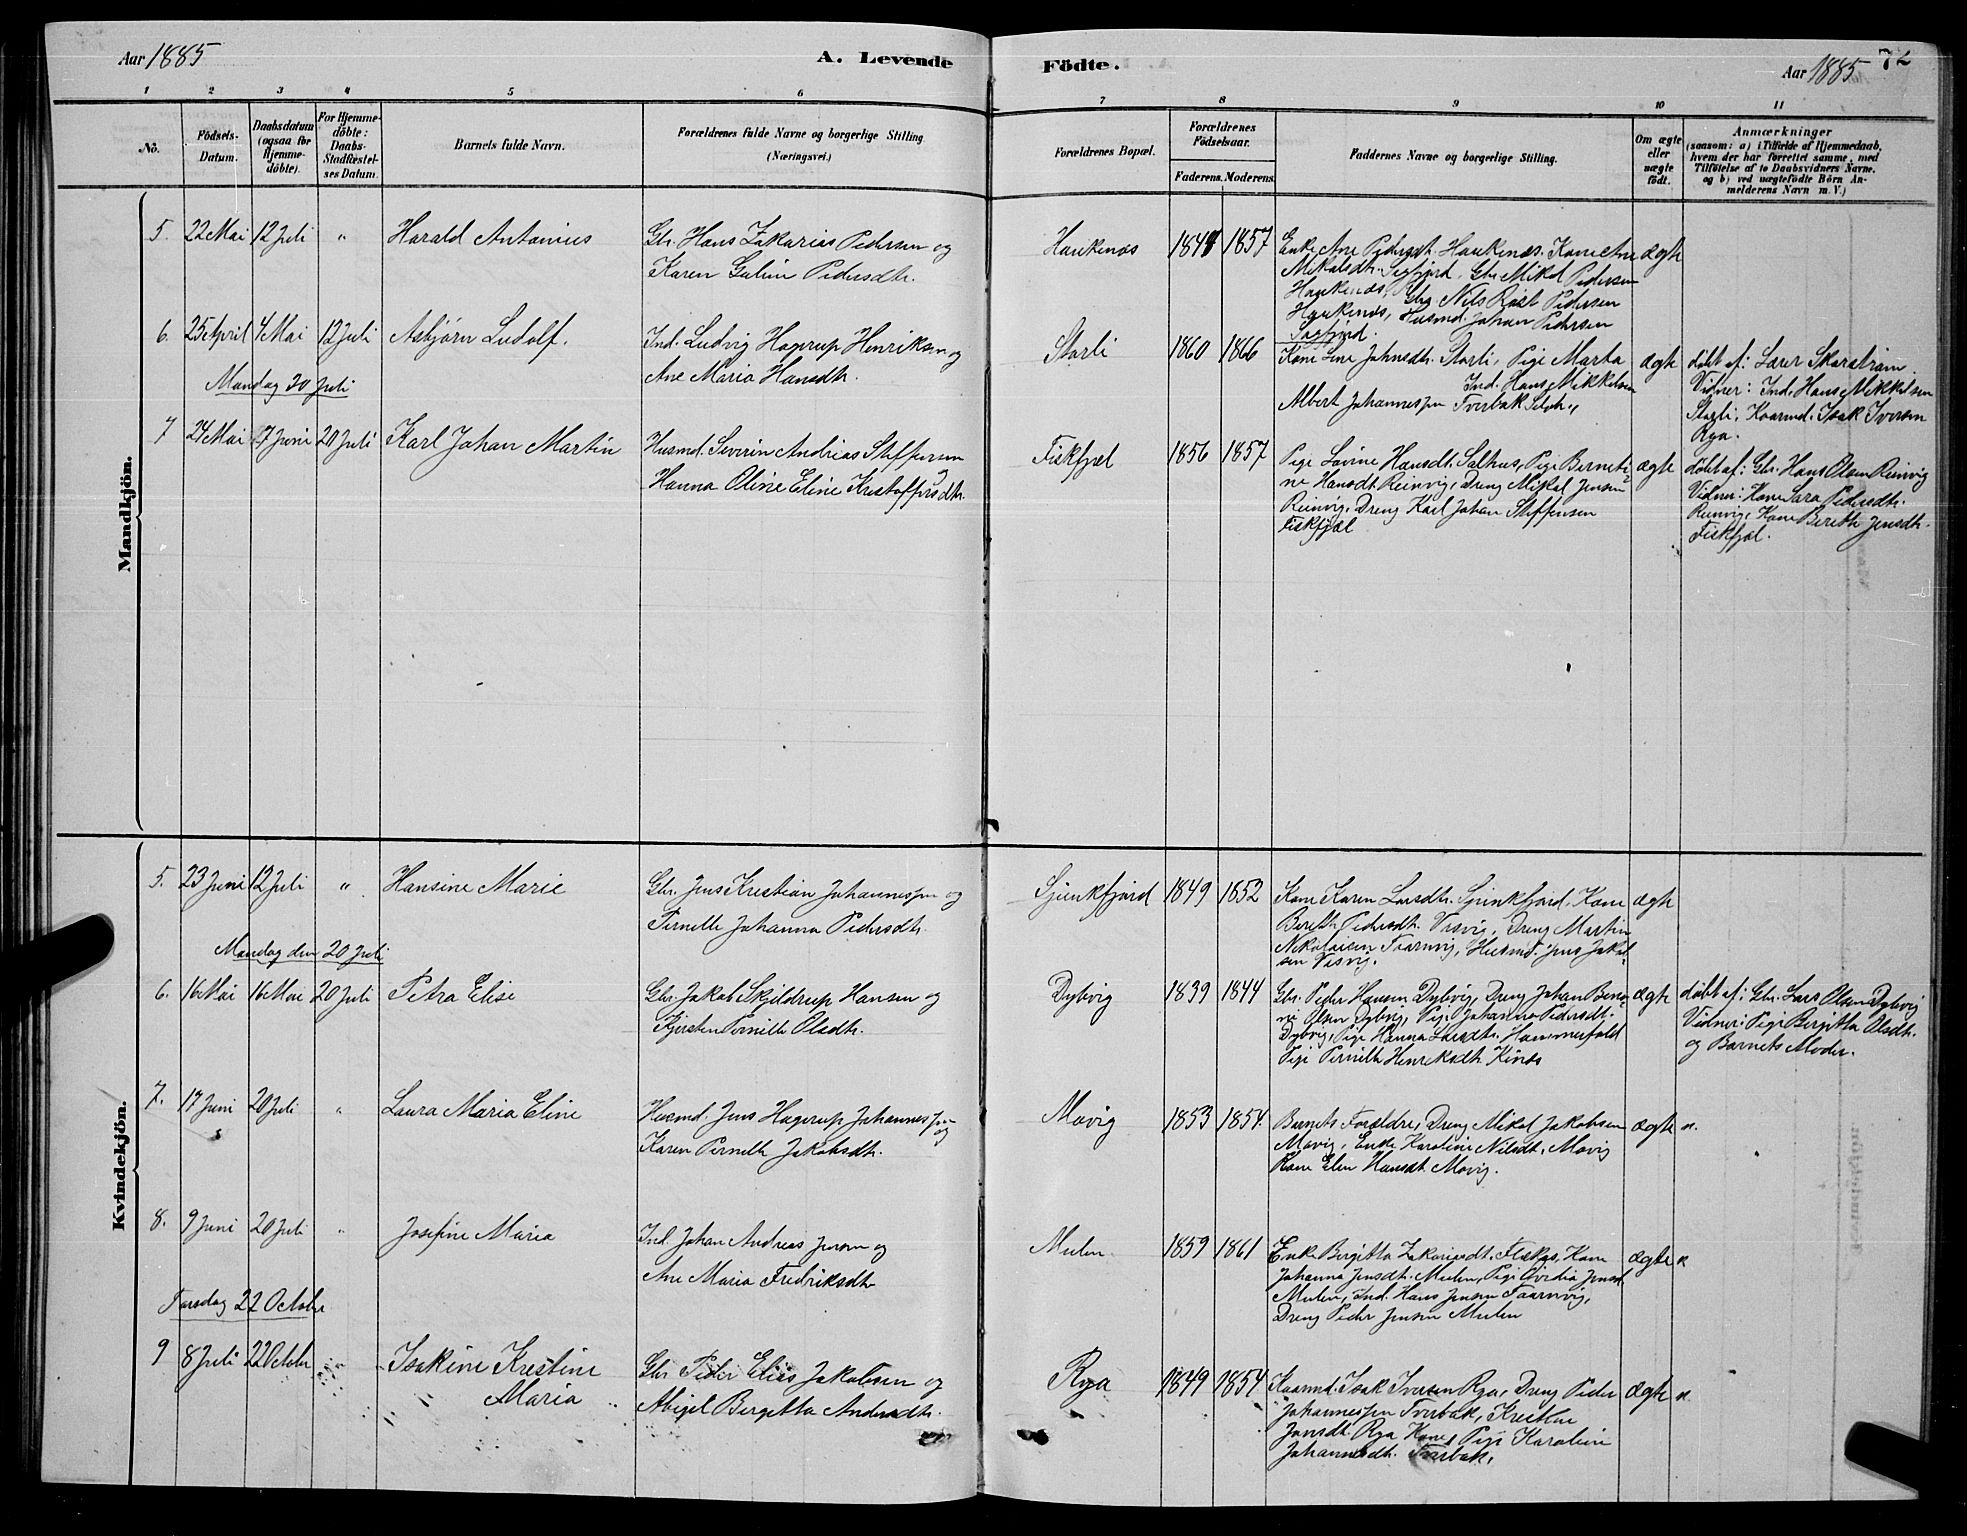 Aar 1885
A. Levende
Födte.
Aar 1885
72
1 2 3 4 5 6 7 8 9 10 11
No.
Födsels-Datum.
Daabsdatum (ogsaa for Hjemme-döbte).
For Hjemme-döbte: Daabs-Stadfæstel-ses Datum.
Barnets fulde Navn.
Forældrenes fulde Navne og borgerlige Stilling
(Næringsvei.)
Forældrenes Bopæl.
Forældrenes Födselsaar.
Faderens. Moderens.
Faddernes Navne og borgerlige Stilling.
Om ægte eller uægte födt.
Anmærkninger
(saasom: a) i Tilfælde af Hjemmedaab,
hvem der har forrettet samme, med
Tilföielse af to Daabsvidners Navne,
og b) ved uægtefödte Börn An-
melderens Navn m. V.)
Mandkjön.
5. 22 Mai 12 Juli " Harald Antonius
Gbr. Hans Zakarias Pedersen og
Karen Gurine Pedersdtr.
Haukenæs 1844 1857
Enke Ane Pedersdt. Haukenæs. Kone Ane
Mikalsdtr. , Gbr. Mikal Pedersen
Haukenæs, Gbr Nils Røst Pedersen
Haukenæs, Husmd. Johan Pedersen
ægte
6. 25 April 4 Mai 12 Juli Asbjørn Ludolf.
Ind. Ludvig Hagerup Henriksen og
Ane Maria Hansdtr.
Storli 1860 1866
Kone Line Johnsdtr. Storli, Pige Marta
Ind. Hans Mikkelsen
Albert Johannesen Tverbak
ægte
døbt af: Lærer Skarstrøm.
Vidner: Ind. Hans Mikkelsen
Storli, Kaarmd. Isak Iversen
Rya.
Mandag 20 Juli
7 24 Mai 7 Juni 20 Juli Karl Johan Martin
Husmd. Severin Andrias Steffensen
Hanna Oline Eline Kristoffersdtr.
Fiskfjøl 1856 1857
Pige Lovine Hansdt. Salhus, Pige Berneti-
ne Hansdt. Reinvig, Dreng Mikal Jensen
Reinvig, Dreng Karl Johan Steffensen
Fiskfjøl
ægte
døbt af: Gbr. Hans Olsen Reinvig
Vidner: Kone Sara Pedersdtr.
Reinvig, Kone Bereth Jensdtr.
Fiskfjøl.
Kvindekjön.
5. 23 Juni 12 Juli " Hansine Marie
Gbr. Jens Krestian Johannesen og
Pernelle Johanna Pedersdtr.
Sjunkfjord 1849 1852
Kone Karen Larsdtr. Sjunkfjord, Kone
Bereth Pedersdt. Vasvig, Dreng Martin
Nikolaisen Taarnvig, Husmd. Jens Jakob-
sen Vasvig.
ægte
Mandag den 20 Juli
6. 16 Mai 16 Mai 20 Juli Petra Elise
Gbr. Jakob Skjeldrup Hansen og
Kjersten Pernille Olsdtr.
Dybvig 1839 1844
Gbr. Peder Hansen Dybvig, Dreng Johan Beno-
ni Olsen Dybvig, Pige Johanna Pedersdt.
Dybvig, Pige Hanna Larsdtr. Hammerfald
Pige Pernille Henriksdtr. Kinæs
ægte
døbt af: Gbr. Lars Olsen Dybvig
Vidner: Pige Birgitta Olsdtr.
og Barnets Moder.
7. 17 Juni 20 Juli " Laura Maria Eline
Husmd. Jens Hagerup Johannesen og
Karen Pernille Jakobsdtr.
Movig 1853 1854.
Barnets Forældre, Dreng Mikal Jakobsen
Movig, Enke Karoline Nilsdt. Movig
Kone Elen Hansdt. Movig.
ægte
8. 9 Juni 20 Juli " Josefine Maria
Ind. Johan Andreas Jensen og
Ane Maria Fredriksdtr
Mulen 1859 1861
Enke Birgitta Zakariasdt. , Kone
Johanna Jensdtr. Mulen, Pige Ovidia Jensdt.
Mulen, Ind. Hans Jensen Taarnvig,
Dreng Peder Jensen Mulen
ægte
Torsdag 22 October
9 8 Juli 22 October " Isakine Krestine
Maria
Gbr Peder Elias Jakobsen og
Abigel Birgitta Andersdtr.
Rya 1849 1854
Kaarmd. Isak Iversen Rya, Dreng Peder
Johannesen Tverbak, Krestine
Jonsdt. Rya Kone, Pige Karoline
Johannesdtr. Tverbak.
ægte